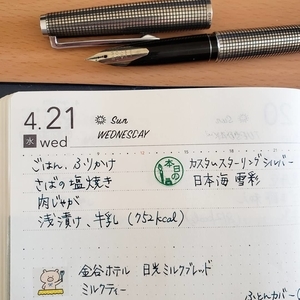 4.21
水 wed
Sun
WEDNESDAY
ごはん、ふりかけ
さばの塩焼き
肉じゃが
浅漬け、牛乳 (752kcal)
本日の
カスタムスターリングシルバー
日本海 雪彩
金谷ホテル 日光ミルクブレッド
ミルクティー
ふとんカバー(